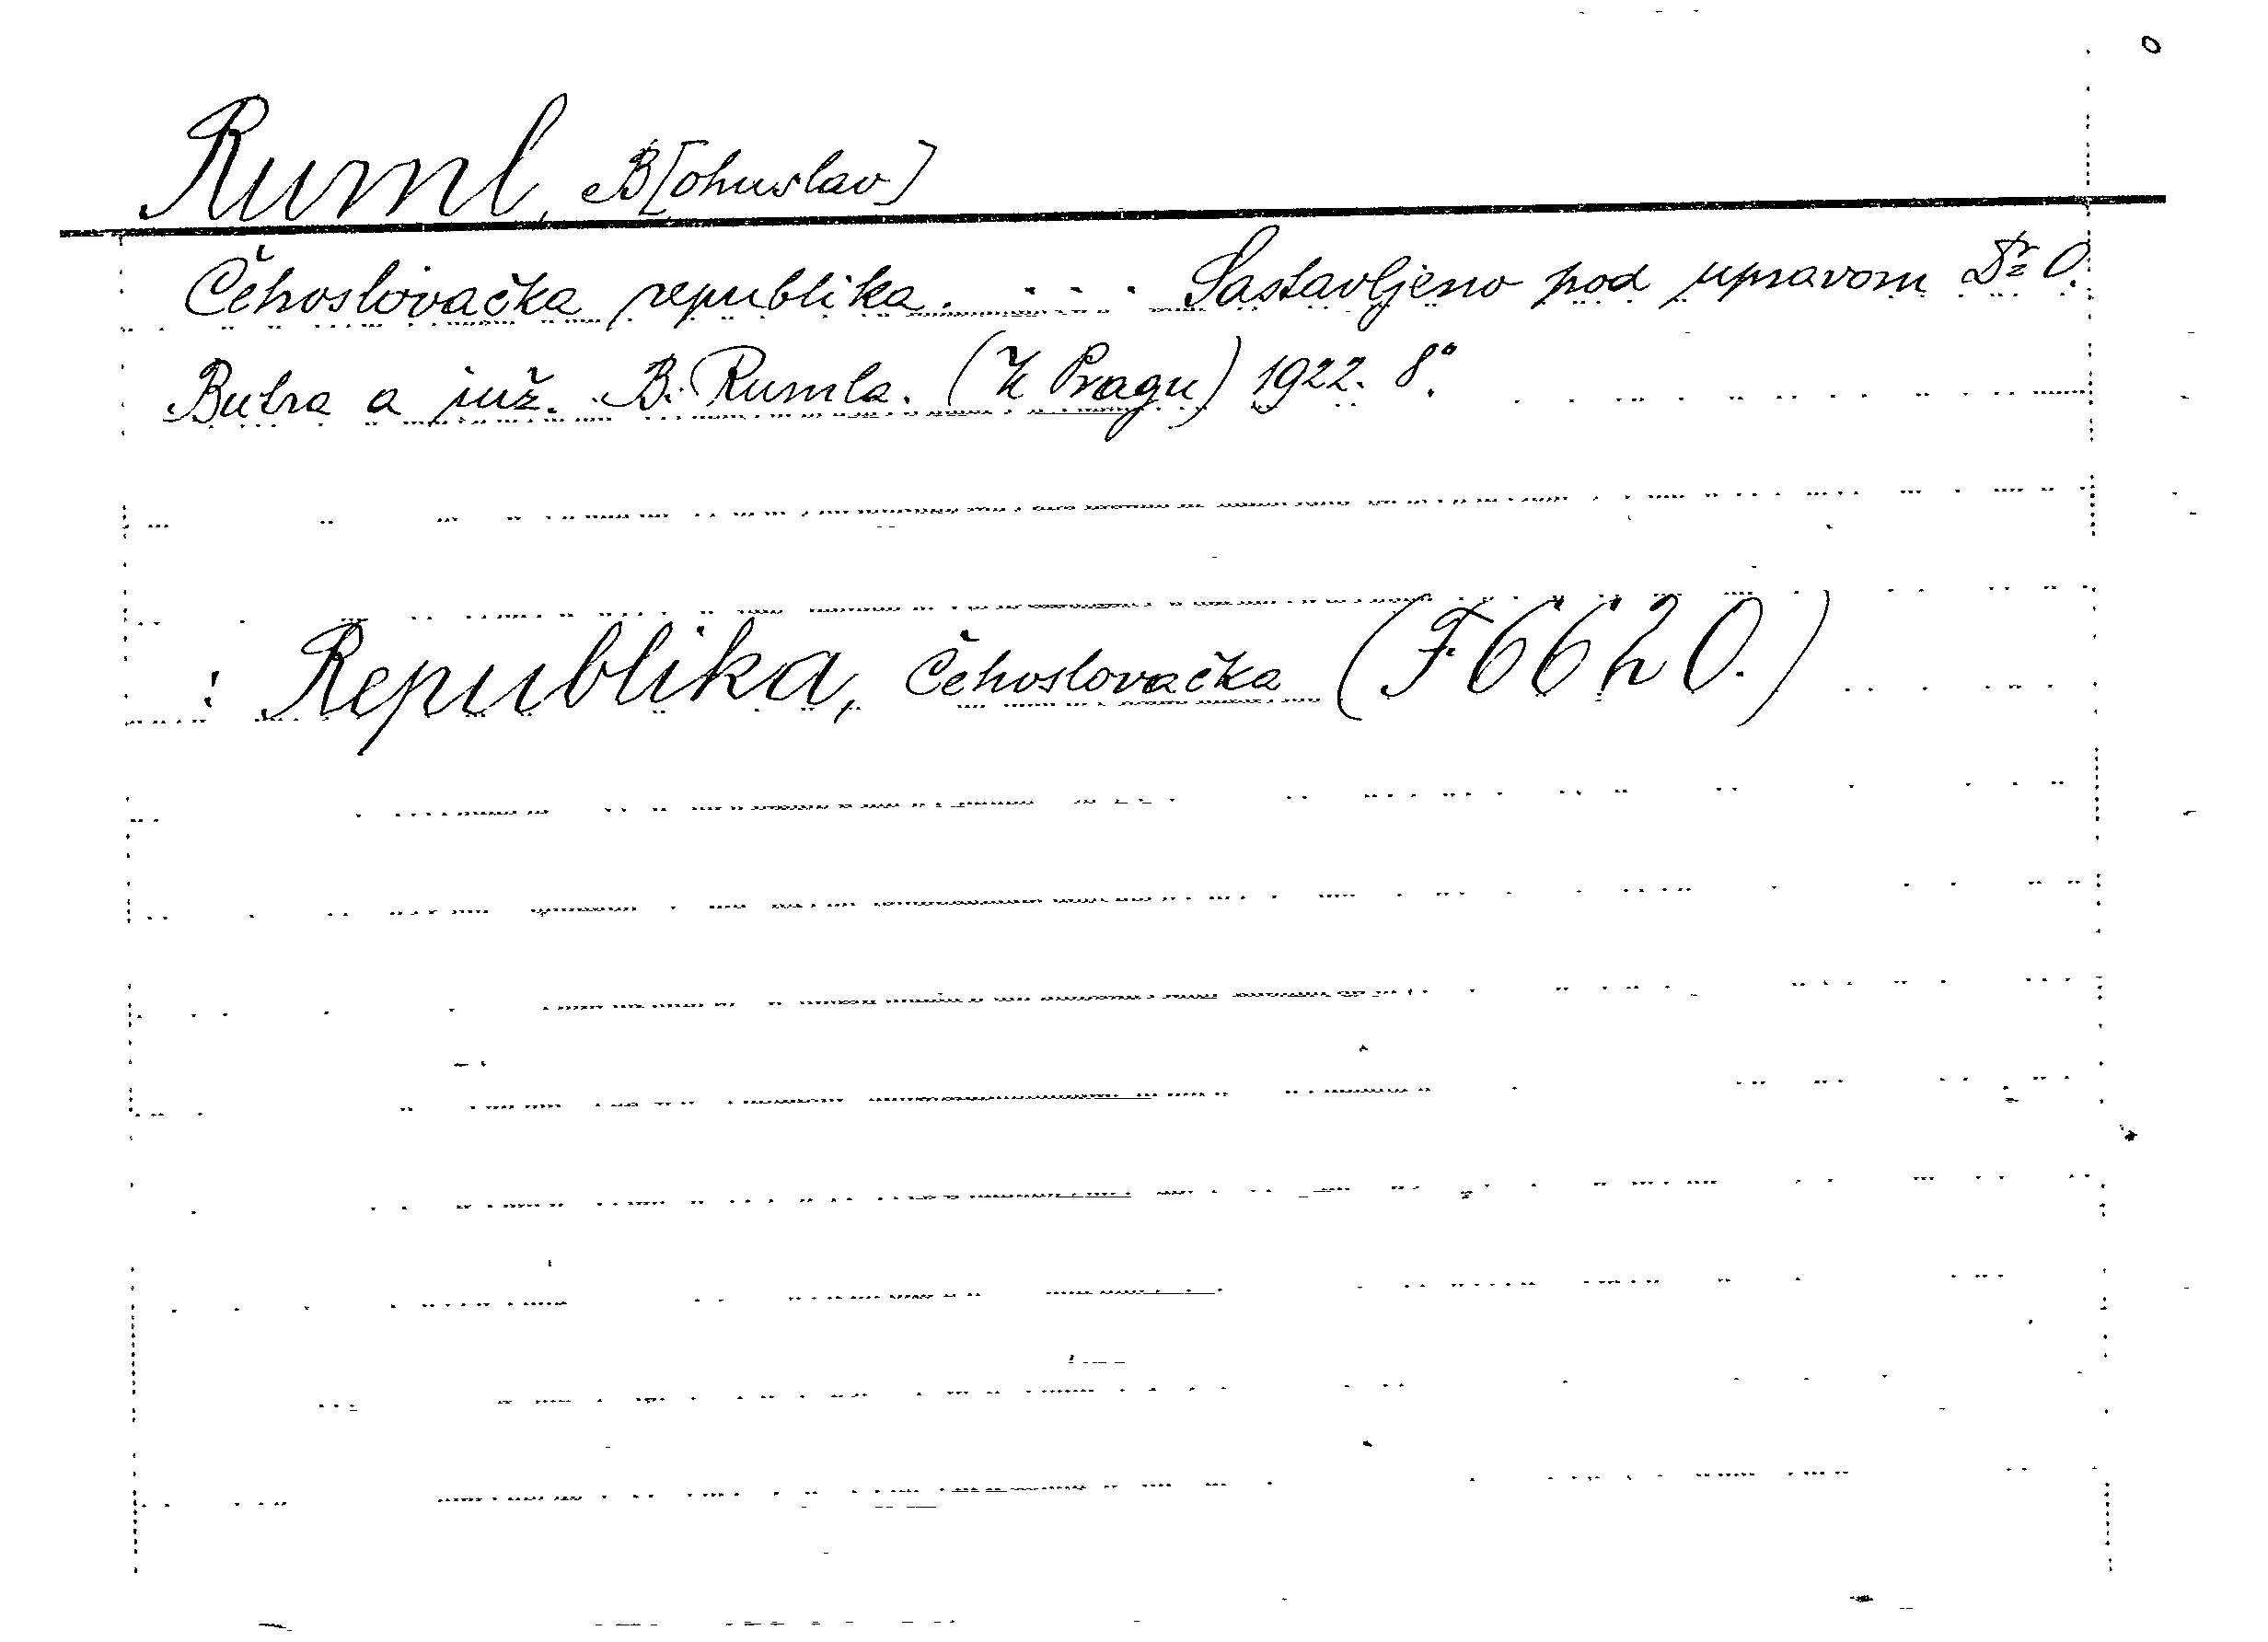 Ruml, B[ohuslav]
Čehoslovačka republika. . . . Sastavljeno pod upravom Dr O.
Butra a inž. B. Rumla. (U Pragu) 1922. 8°.
: Republika, Čehoslovačka (F. 6620.)